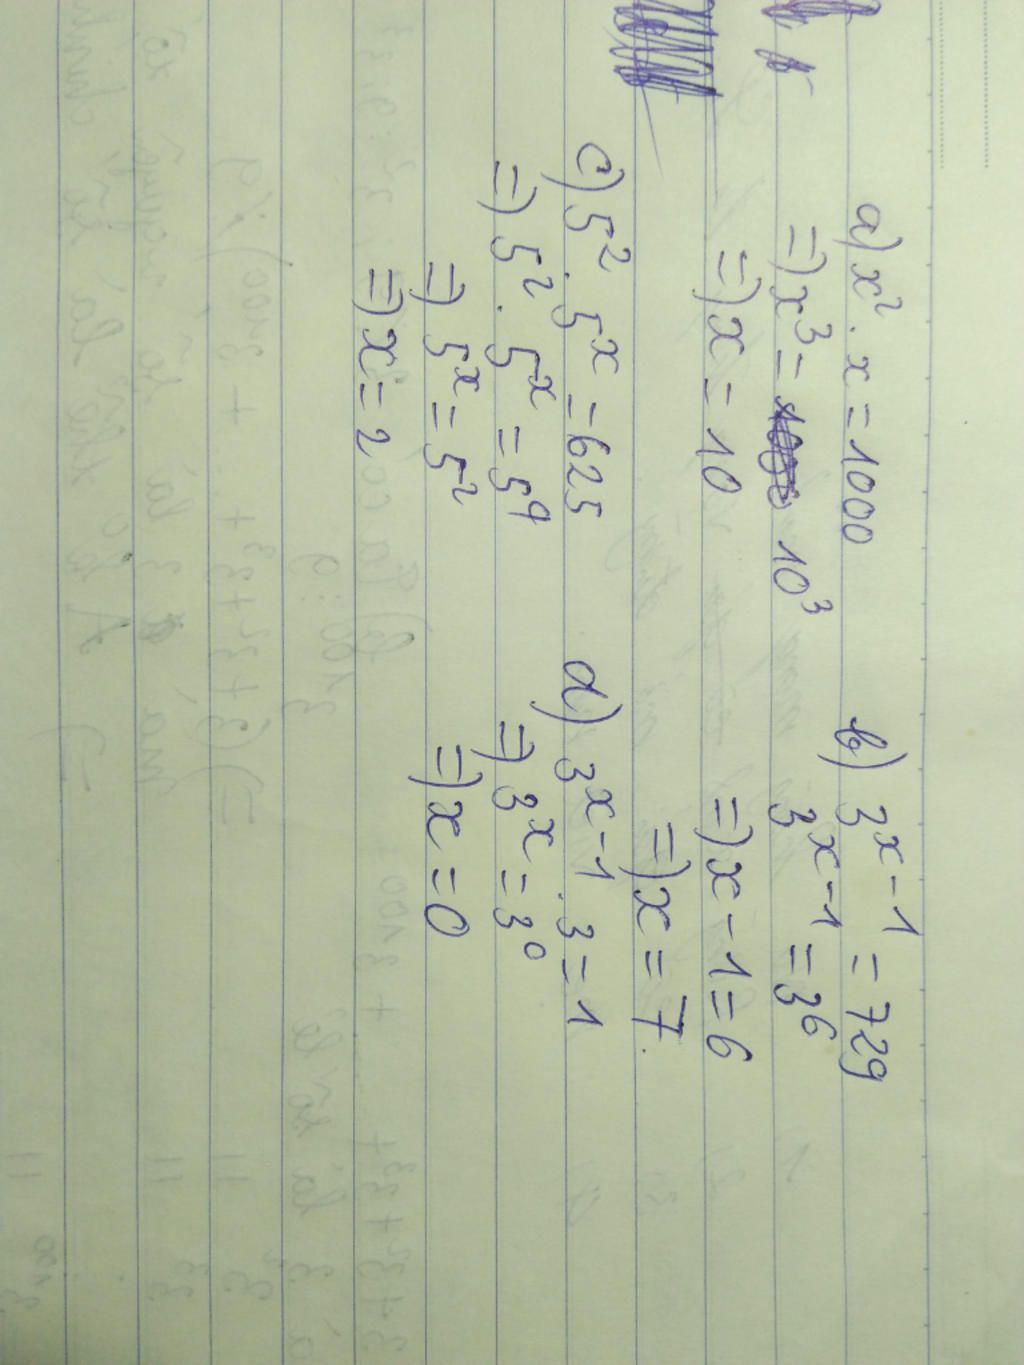 a) x² . x = 1000
=) x³ = 10³
=) x = 10
b) 3ˣ⁻¹ = 729
3ˣ⁻¹ = 3⁶
=) x - 1 = 6
=) x = 7.
c) 5² . 5ˣ = 625
=) 5² . 5ˣ = 5⁴
=) 5ˣ = 5²
=) x = 2
d) 3ˣ⁻¹ . 3 = 1
=) 3ˣ = 3⁰
=) x = 0